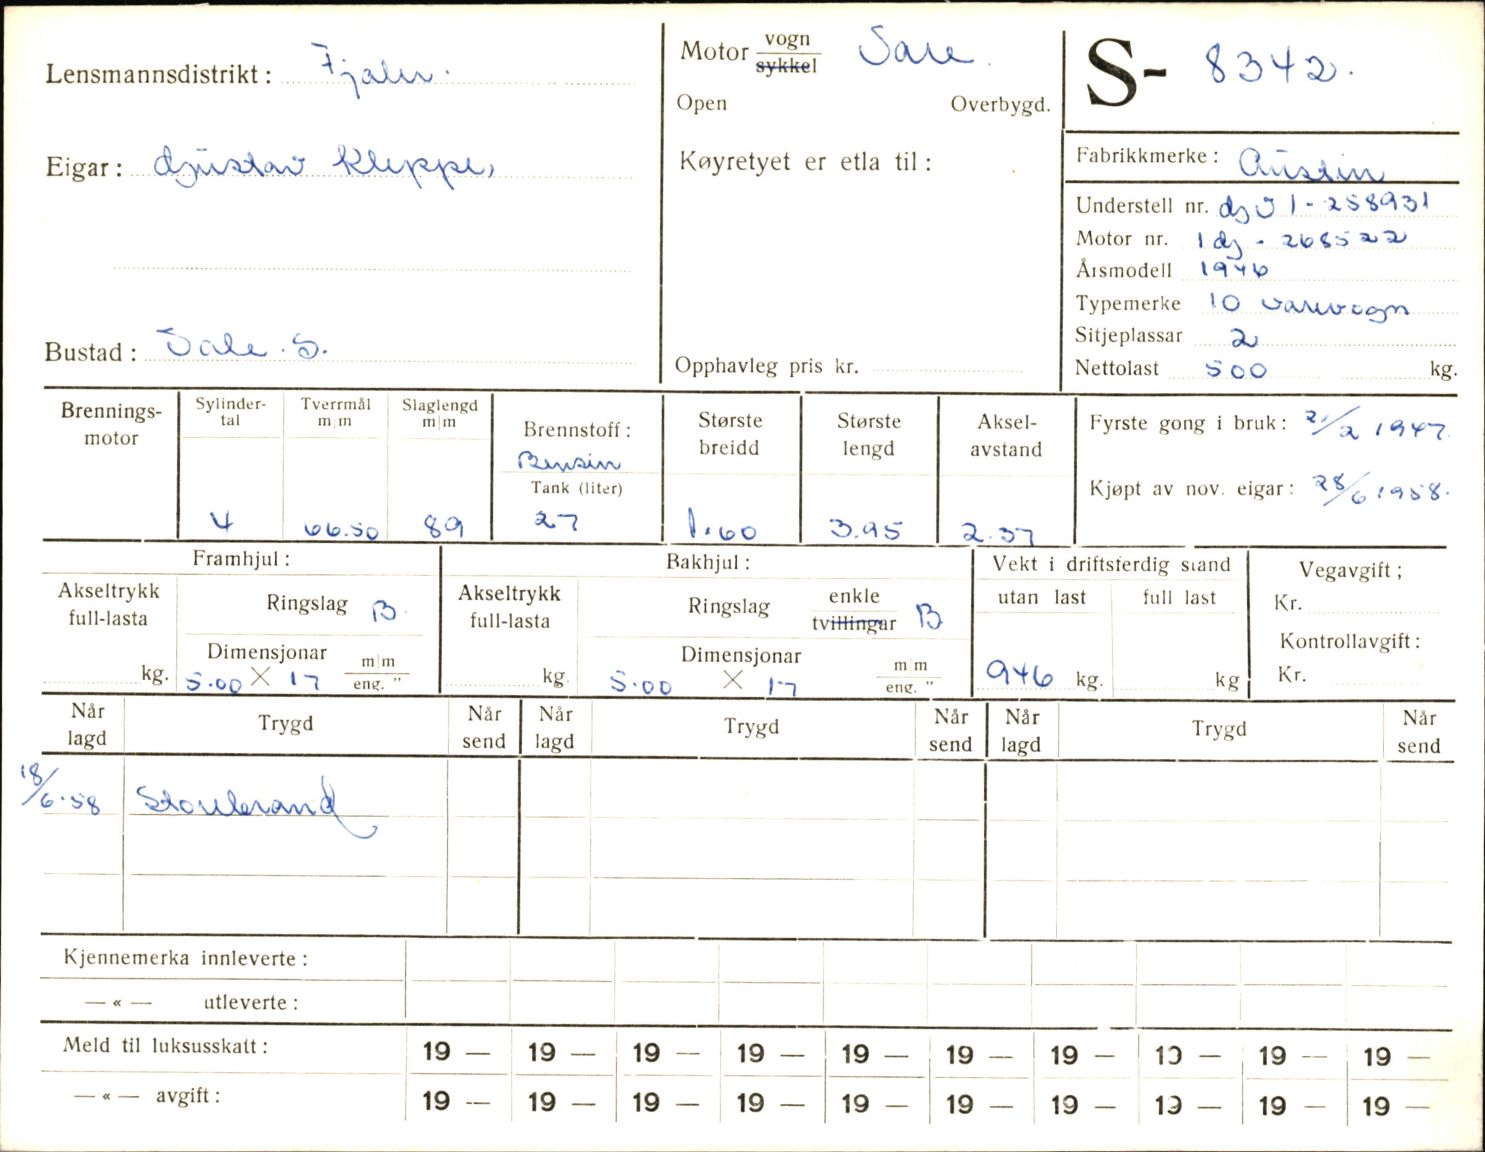 Lensmannsdistrikt: Fjaler.
Eigar: Gustav Kleppe,
Bustad: Dale. S.
Motor vogn sykkel Vare.
Open Overbygd.
Køyretyet er etla til:
Opphavleg pris kr.
S- 8342.
Fabrikkmerke: Austin
Understell nr. GV 1-258931
Motor nr. 1G-268522
Årsmodell 1946
Typemerke 10 varevogn
Sitjeplassar 2
Nettolast 500 kg.
Brennings-
motor
Sylinder-
tal
4
Tverrmål
m|m
66.50
Slaglengd
m|m
89
Brennstoff:
Bensin
Tank (liter)
27
Største
breidd
1.60
Største
lengd
3.95
Aksel-
avstand
2.37
Fyrste gong i bruk: 21/2 1947.
Kjøpt av nov. eigar: 28/6 1958.
Framhjul:
Akseltrykk
full-lasta
kg.
Ringslag B
Dimensjonar m|m
5.00 X 17 eng. "
Bakhjul:
Akseltrykk
full-lasta
kg.
Ringslag enkle tvillingar B
Dimensjonar m|m
5.00 X 17 eng. "
Vekt i driftsferdig stand
utan last full last
946 kg. kg
Vegavgift;
Kr.
Kontrollavgift:
Kr.
Når
lagd
Trygd
Når
send
Når
lagd
Trygd
Når
send
Når
lagd
Trygd
Når
send
18/6-58 Storebrand
Kjennemerka innleverte:
— « — utleverte:
Meld til luksusskatt: 19 — 19 — 19 — 19 — 19 — 19 — 19 — 19 — 19 — 19 —
— « — avgift: 19 — 19 — 19 — 19 — 19 — 19 — 19 — 19 — 19 — 19 —